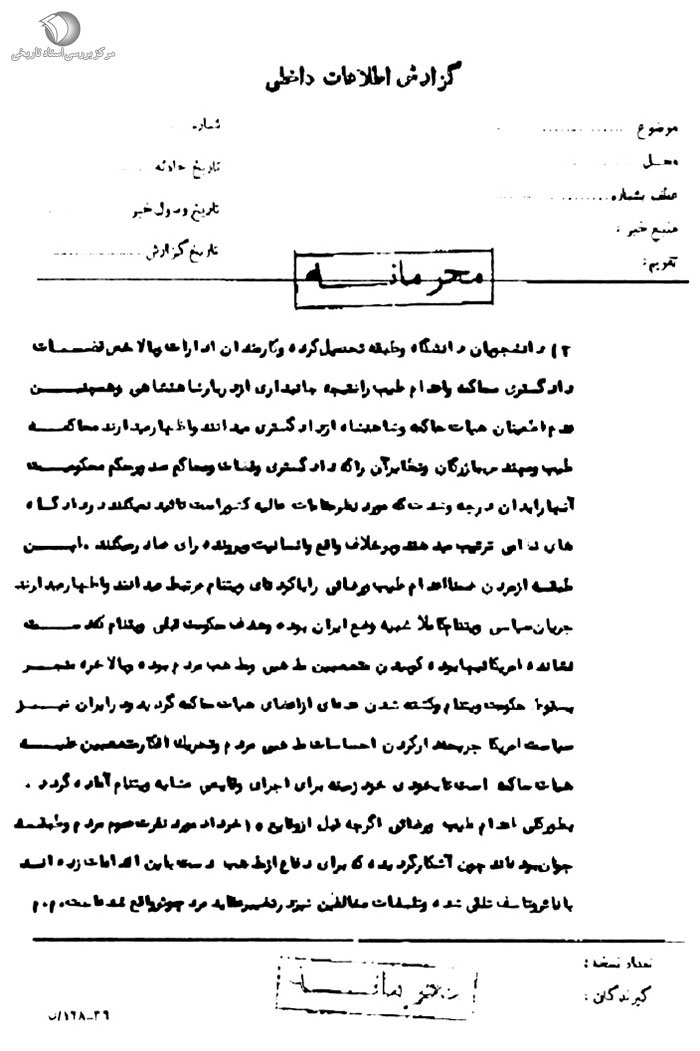 مرکز بررسی اسناد تاریخی
گزارش اطلاعات داخلی
موضوع
شماره
محل
تاریخ حادثه
عطف بشماره
تاریخ وصول خبر
منبع خبر :
تاریخ گزارش
تقویم :
محرمانه
۲) دانشجویان دانشگاه وطبقه تحصیل کرده وکارمندان ادارات وبالاخص قضات
دادگستری محاکمه واعدام طیب را نتیجه جانبداری از دربار شاهنشاهی وهمچنین
عدم اطمینان هیات حاکمه وشاهنشاه از دادگستری میدانند واظهار میدارند محاکمه
طیب ومهندس بازرگان را که دادگستری وقضات ومحاکم صدور حکم محکومیت
آنها را بدان درجه وشدت که مورد نظر مقامات عالیه کشور است تائید نمیکند در دادگاه
های نظامی ترتیب میدهند وبرخلاف واقع وانسانیت وپرونده رای صادر میکنند . این
طبقه از مردم ضمنا اعدام طیب ورضائی را با کودتای ویتنام مرتبط میدانند واظهار میدارند
جریان سیاسی ویتنام کاملا شبیه وضع ایران بوده وهدف حکومت قبلی ویتنام که دست
نشانده امریکائیها بوده کوبیدن متعصبین مذهبی ومذهب مردم بوده وبالاخره منجر
بسقوط حکومت ویتنام وکشته شدن عده‌ای از اعضای هیات حاکمه گردید ودر ایران نیز
سیاست امریکا جریحه‌دار کردن احساسات مذهبی مردم وتحریک افکار متعصبین علیه
هیات حاکمه است تا بخودی خود زمینه برای اجرای وقایعی مشابه ویتنام آماده گردد .
بطور کلی اعدام طیب ورضائی اگرچه قبل از وقایع ۱۵ خرداد مورد نفرت عموم مردم وطبقه
جوان بوده‌اند چون آشکار گردیده که برای دفاع از مذهب دست باین اقدامات زده‌اند
با تاثر وتاسف تلقی شده وتبلیغات مخالفین نیز در تغییر عقاید مردم موثر واقع شده است. م. م
تعداد نسخه :
گیرندگان :
محرمانه